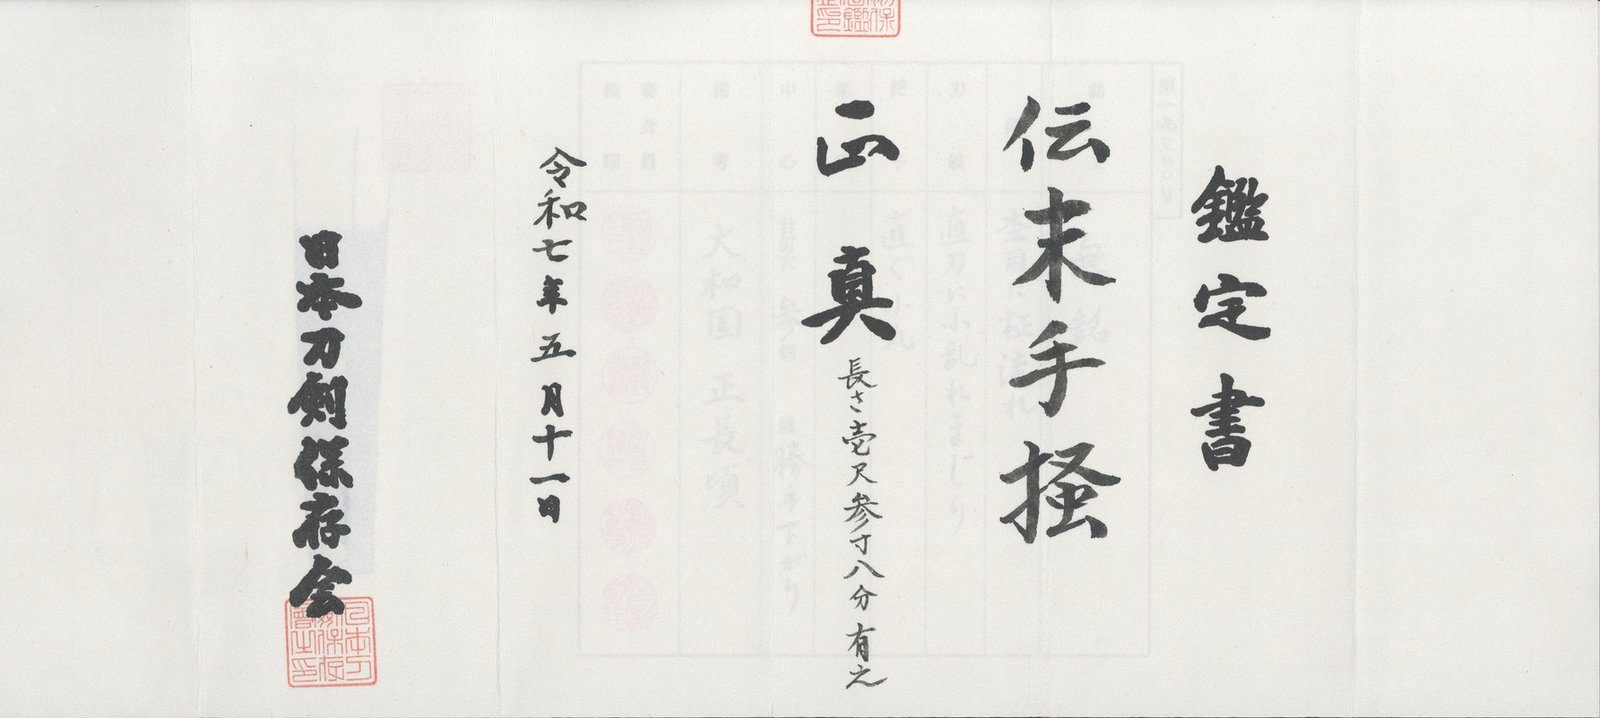 鑑定書
伝末手掻
正真 長さ壱尺参寸八分有之
令和七年五月十一日
日本刀剣保存会